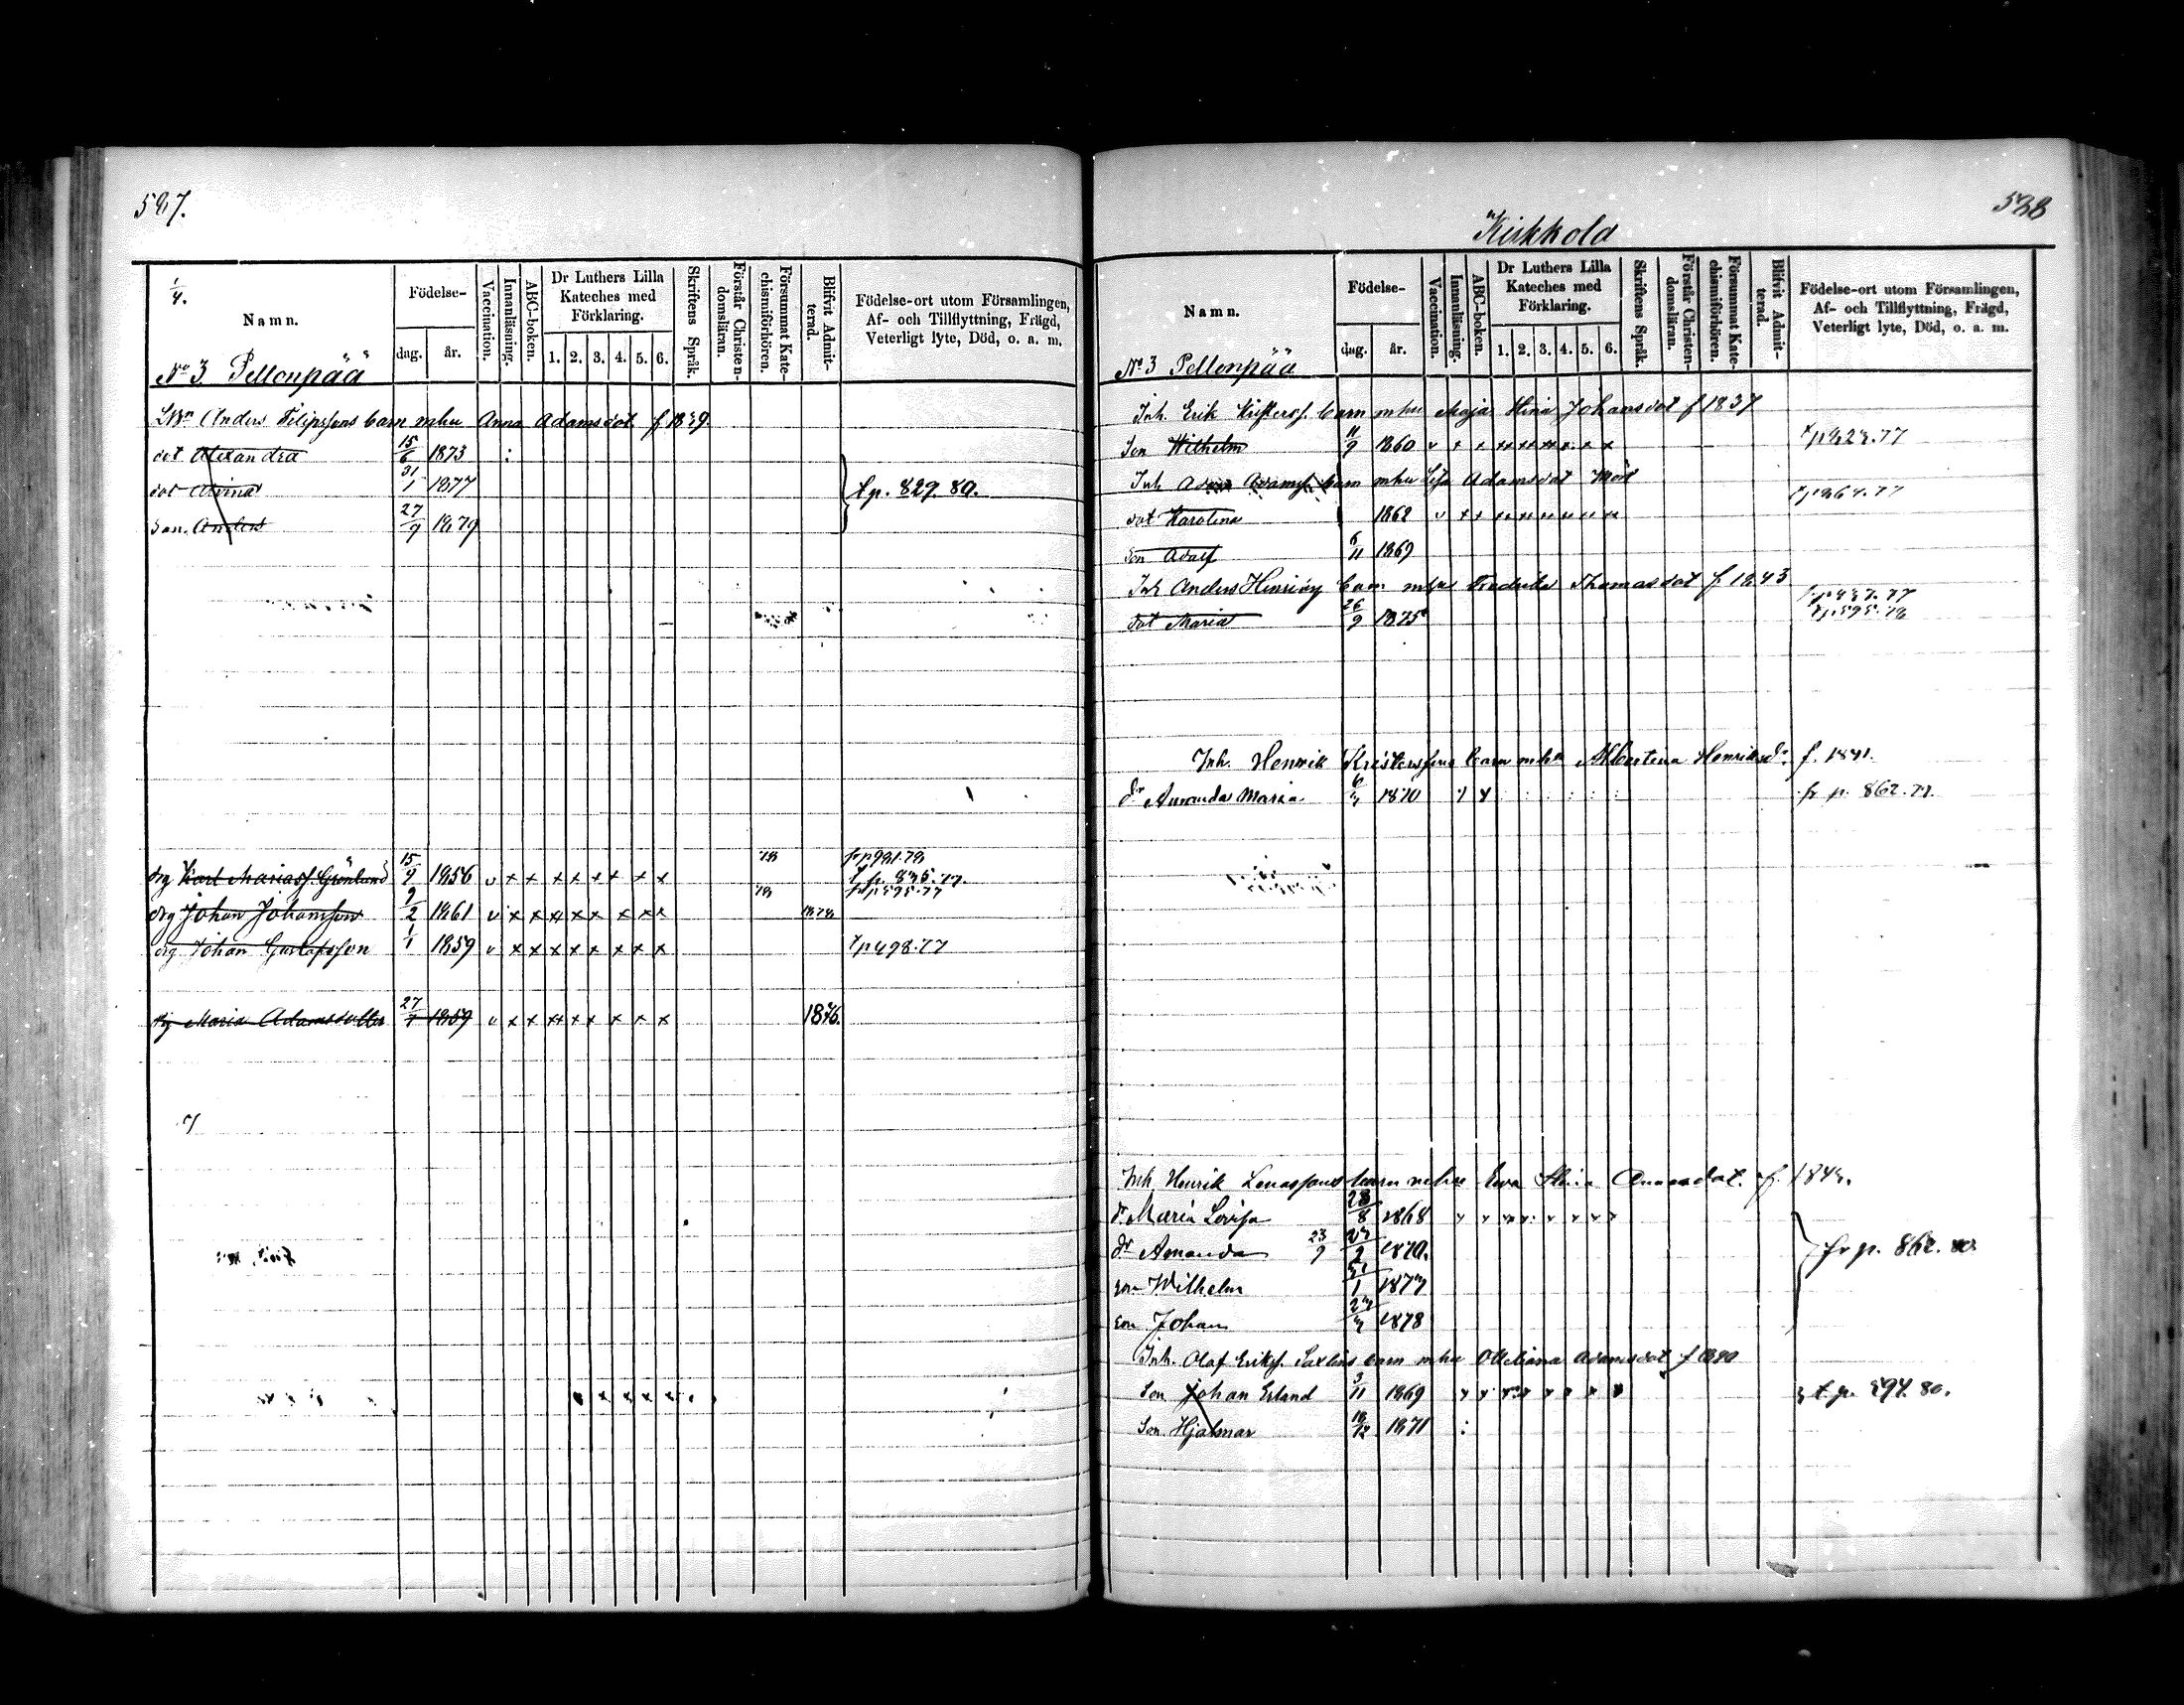 587.
1/4.
Namn.
Födelse-
dag. år.
Vaccination.
Innanläsning.
ABC-boken.
Dr Luthers Lilla Kateches med Förklaring.
1. 2. 3. 4. 5. 6.
Skriftens Språk.
Förstår Christendomsläran.
Försummat Katechismiförhören.
Blifvit Admitterad.
Födelse-ort utom Församlingen, Af- och Tillflyttning, Frägd, Veterligt lyte, Död, o. a. m.
No 3 Pellonpää
Anders Filipssons barn mhu Anna Adamsdot f 1839.
dot Alexandra 15/6 1873 :
dot Alvina 31/1 1877 t p. 829. 80.
Son. Anders 27/9 1879
drg Karl Mariass. Grönlund 15/9 1856 v x x x x x x x x 78
drg Johan Johansson 1/2 1861 v x x x x x x x x 78 1878
drg Johan Gustafsson 1/1 1859 v x x x x x x x x t p 498.77
Maria Adamsdotter 27/1 1859 v x x x x x x x x 1876.
588
Kirkkola
Namn.
Födelse-
dag. år.
Vaccination.
Innanläsning.
ABC-boken.
Dr Luthers Lilla Kateches med Förklaring.
1. 2. 3. 4. 5. 6.
Skriftens Språk.
Förstår Christendomsläran.
Försummat Katechismiförhören.
Blifvit Admitterad.
Födelse-ort utom Församlingen, Af- och Tillflyttning, Frägd, Veterligt lyte, Död, o. a. m.
No 3 Pellonpää
Inh. Erik Kristerss. barn mhu Maja Stina Johansdot f 1837
Son Wilhelm 11/9 1860 v x x x x x x x x
Inh barn mhu Lisa Adamsdot
dot Karolina 1862 v x x x x x x x x
Son Adolf 6/11 1869
Inh Anders Henrics barn mhu Fredrika Thomasdot f 1843
dot Maria 26/9 1875 t p 595.78
Inh. Henrik Kristerssons barn mhu Albertina Henriksd. f. 1841.
dr Amanda Maria 1870 fr p. 862.77.
Inh Henrik barn mhu Eva Stina
dr Maria Lovisa 28/8 1868
dr Amanda 1870. fr p. 862.
son Wilhelm 1877
son Johan 1878
Inh. Olaf Erikss. barn mhu Ottiliana Adamsdot f 1840
Son Johan Erland 3/11 1869 t. p. 594. 80.
Son Hjalmar 1871 :